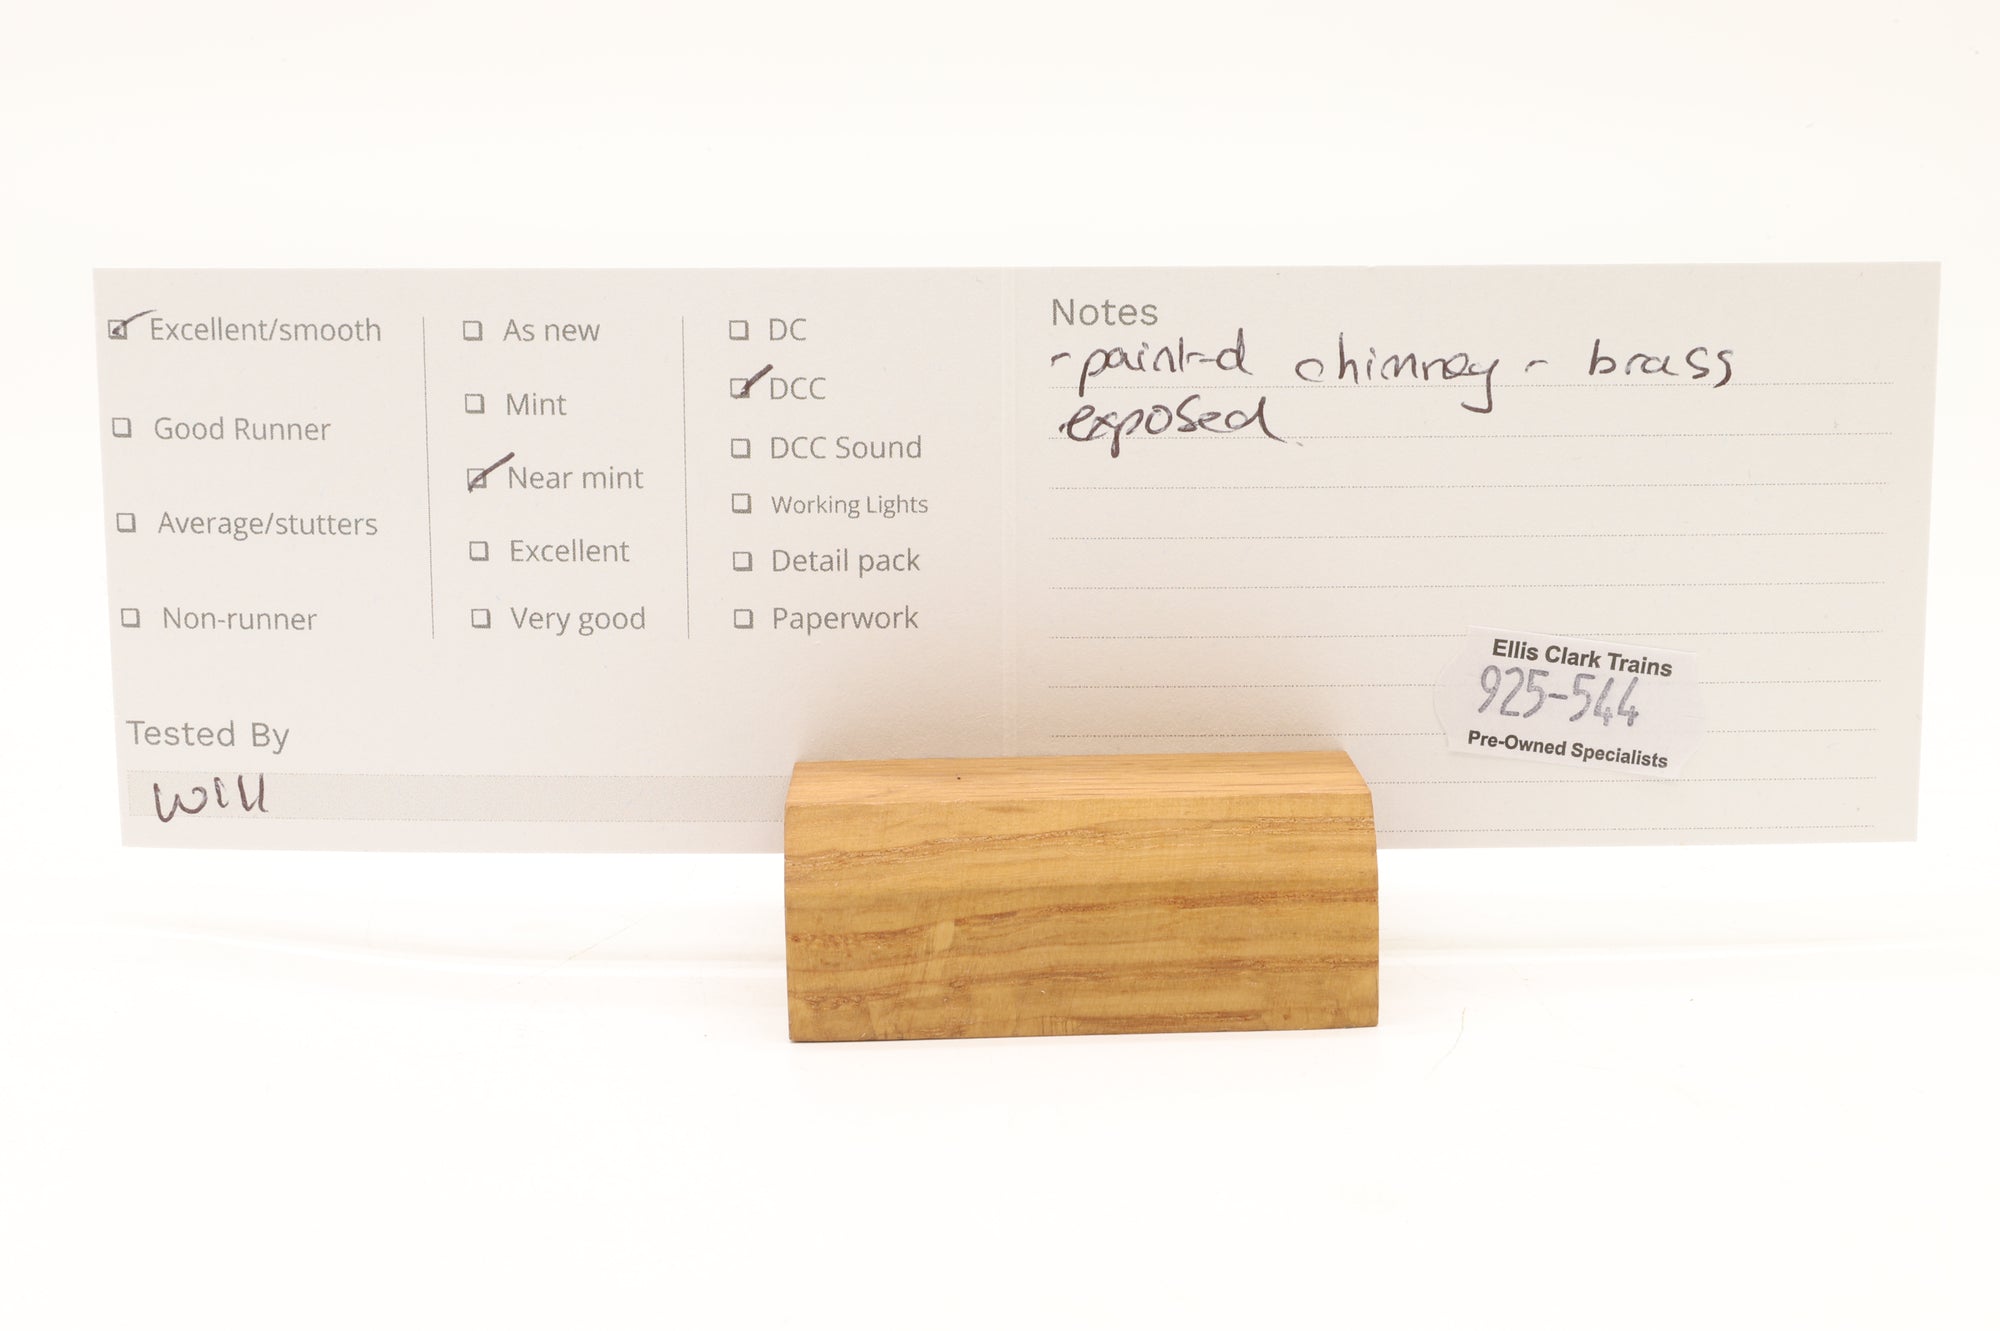 Excellent/smooth
Good Runner
Average/stutters
Non-runner
As new
Mint
Near mint
Excellent
Very good
DC
DCC
DCC Sound
Working Lights
Detail pack
Paperwork
Tested By
Will
Notes
- painted chimney - brass
exposed
Ellis Clark Trains
925-544
Pre-Owned Specialists